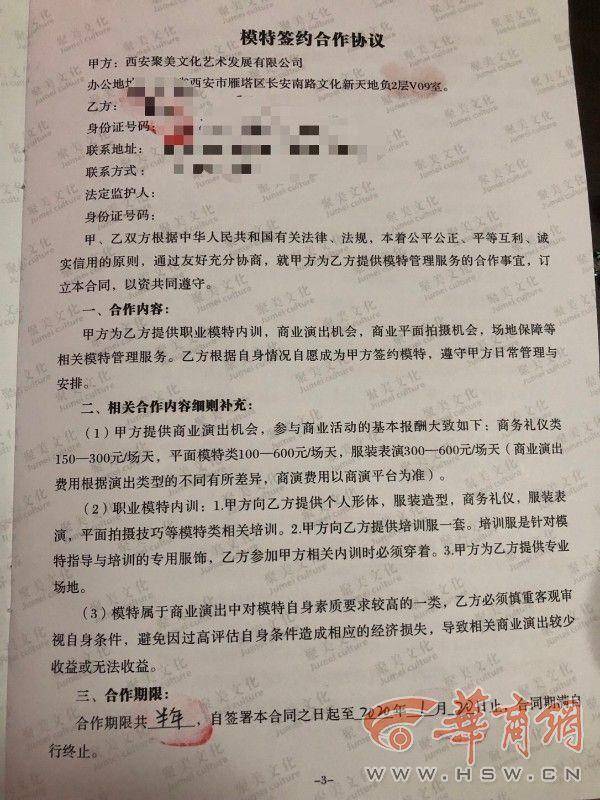 模特签约合作协议
甲方：西安聚美文化艺术发展有限公司
办公地 西安市雁塔区长安南路文化新天地负2层V09室。
乙方：
身份证号码：
联系地址：
联系方式：
法定监护人：
身份证号码：
甲、乙双方根据中华人民共和国有关法律、法规，本着公平公正、平等互利、诚
实信用的原则，通过友好充分协商，就甲方为乙方提供模特管理服务的合作事宜，订
立本合同，以资共同遵守。
一、合作内容：
甲方为乙方提供职业模特内训，商业演出机会，商业平面拍摄机会，场地保障等
相关模特管理服务。乙方根据自身情况自愿成为甲方签约模特，遵守甲方日常管理与
安排。
二、相关合作内容细则补充：
（1）甲方提供商业演出机会，参与商业活动的基本报酬大致如下：商务礼仪类
150—300元/场天，平面模特类100—600元/场天，服装表演300—600元/场天（商业演出
费用根据演出类型的不同有所差异，商演费用以商演平台为准）。
（2）职业模特内训：1.甲方向乙方提供个人形体，服装造型，商务礼仪，服装表
演，平面拍摄技巧等模特类相关培训。2.甲方向乙方提供培训服一套。培训服是针对模
特指导与培训的专用服饰，乙方参加甲方相关内训时必须穿着。3.甲方为乙方提供专业
场地。
（3）模特属于商业演出中对模特自身素质要求较高的一类，乙方必须慎重客观审
视自身条件，避免因过高评估自身条件造成相应的经济损失，导致相关商业演出较少
收益或无法收益。
三、合作期限：
合作期限共 半年 ，自签署本合同之日起至 2020年 1 月 20日止，合同期满自
行终止。
-3-
华商网
WWW.HSW.CN
聚美文化
Jumei culture